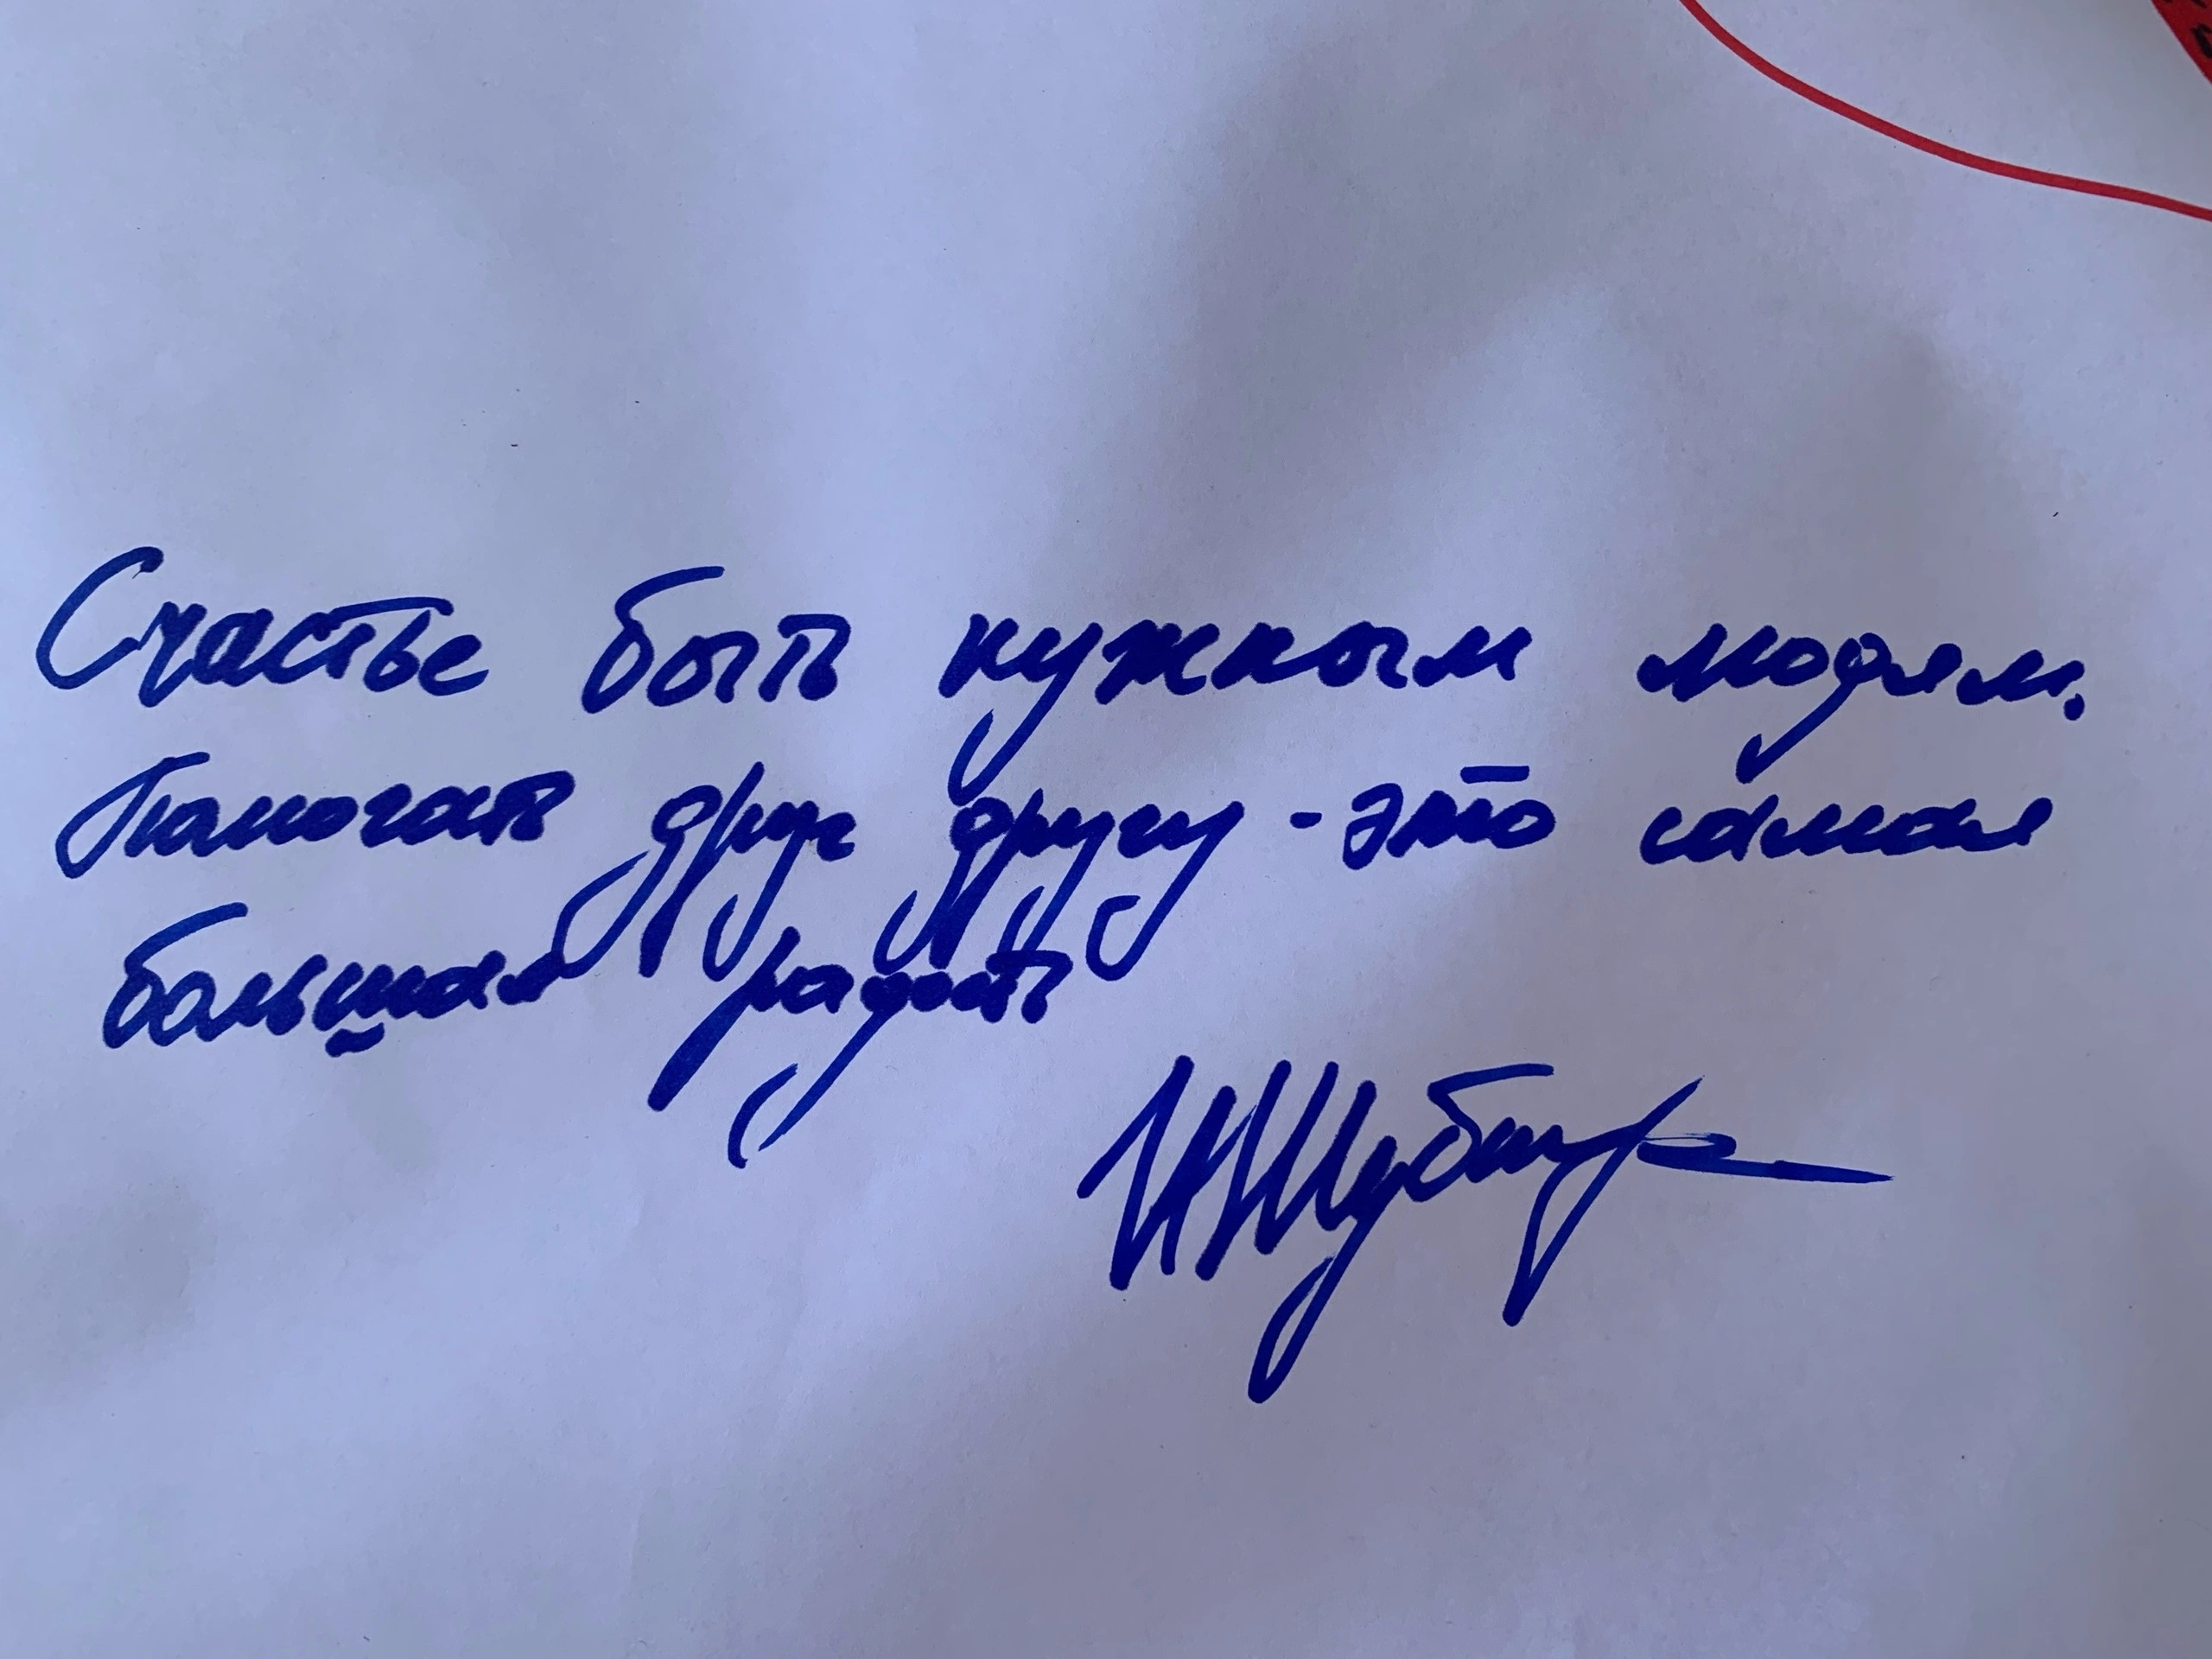 Счастье быть нужным людям.
Помогать друг другу - это самая
большая радость